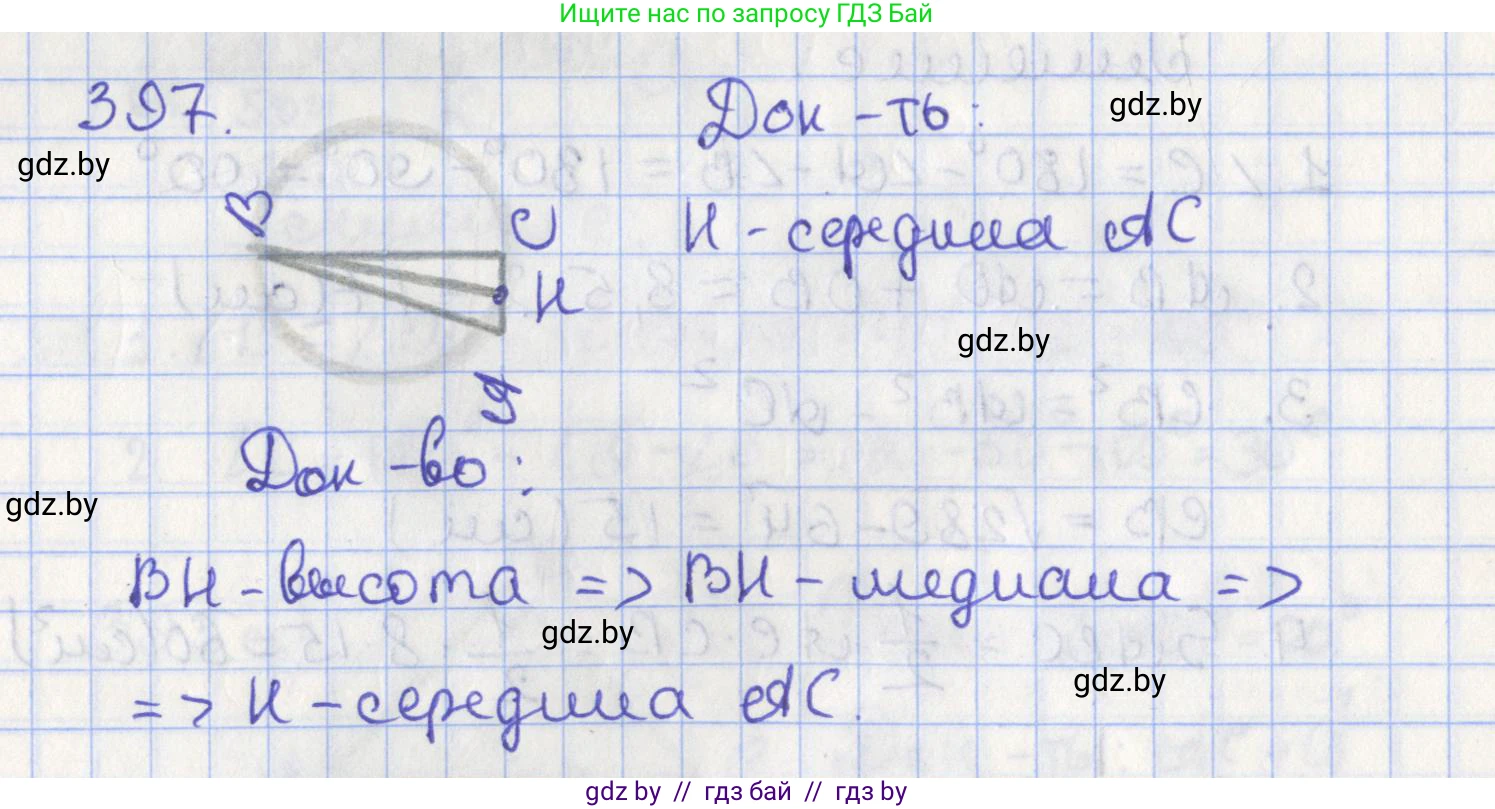 Ищите нас по запросу ГДЗ Бай
397.
Док-ть:
gdz.by
gdz.by
B
C
H - середина AC
H
gdz.by
A
Док-во:
gdz.by
BH - высота => BH - медиана =>
gdz.by
=> H - середина AC.
gdz.by
gdz.by // гдз бай // гдз by